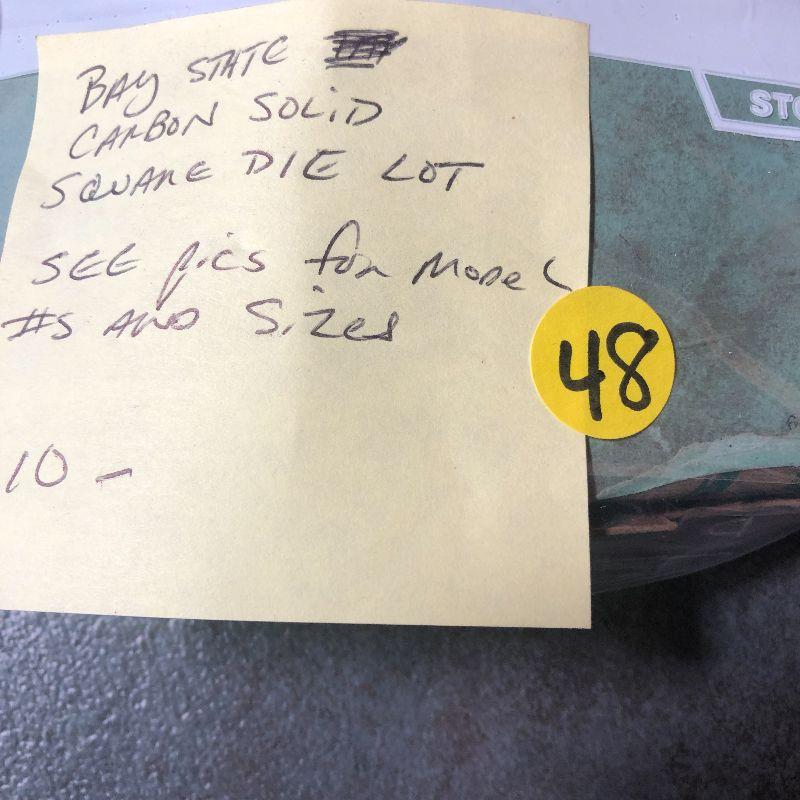 BAY STATE
CARBON SOLID
SQUARE DIE LOT
SEE pics for Model
#s AND Sizes
10 -
48
STO